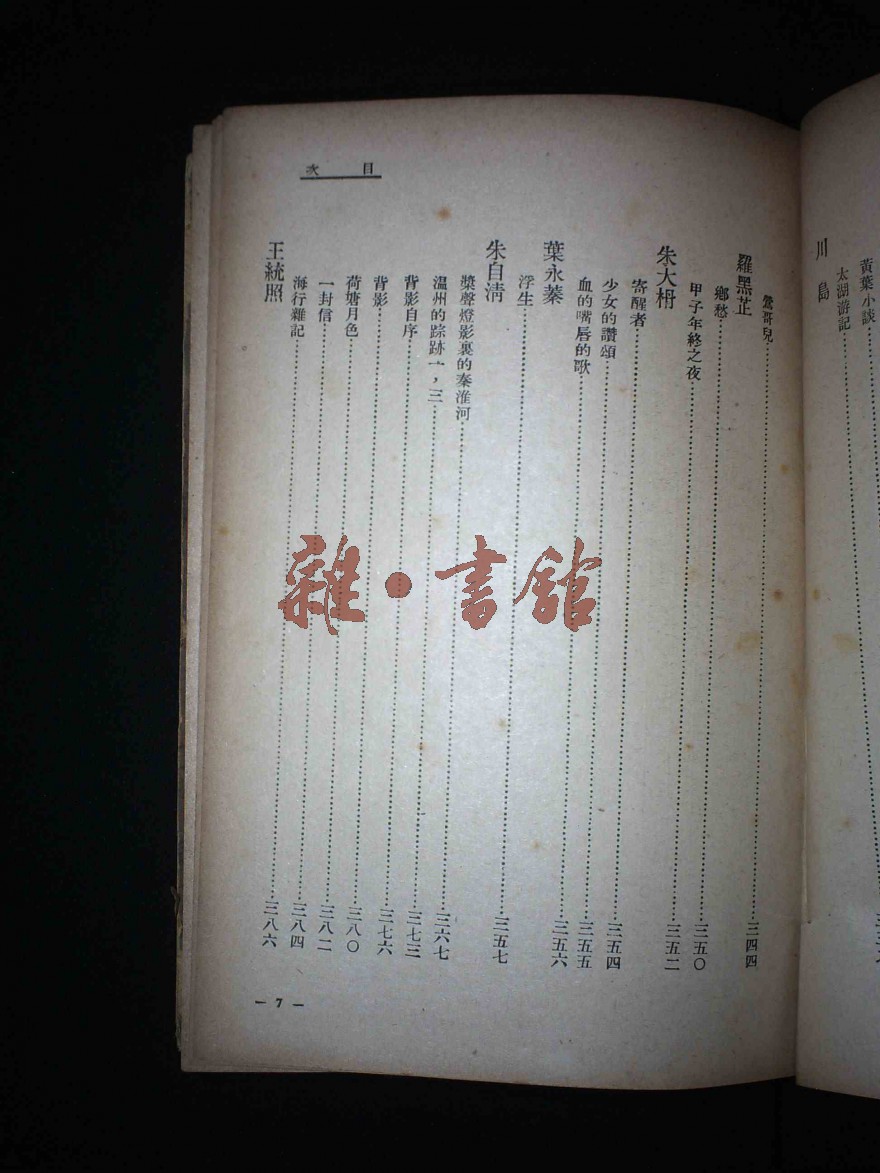 黃葉小談
太湖游記
川島
目次
鶯哥兒……三四四
羅黑芷
鄉愁……三五〇
甲子年終之夜……三五二
朱大枬
寄醒者……三五四
少女的讚頌……三五五
血的嘴唇的歌……三五六
葉永蓁
浮生……三五七
朱自清
槳聲燈影裏的秦淮河……三六七
溫州的踪跡一，三……三七三
背影自序……三七六
背影……三八〇
荷塘月色……三八二
一封信……三八四
海行雜記……三八六
王統照
— 7 —
雜·書館